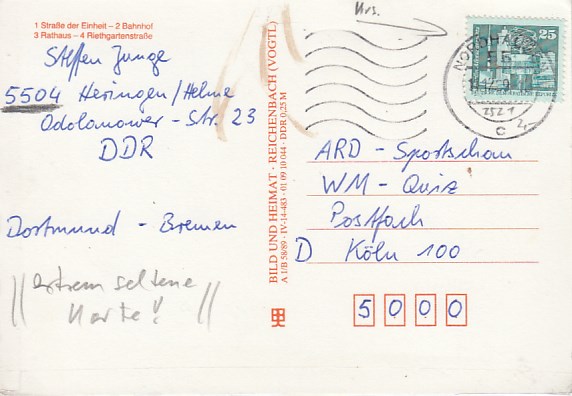 1 Straße der Einheit – 2 Bahnhof
3 Rathaus – 4 Riethgartenstraße
Steffen Junge
5504 Heringen/Helme
Odolanower-Str. 23
DDR
Dortmund - Bremen
extrem seltene
Karte!
BILD UND HEIMAT · REICHENBACH (VOGTL)
A 1/B 58/89 · IV-14-483 · 01 09 10 044 · DDR 0,25 M
25
NORDHAUSEN
c
ARD - Sportschau
WM - Quiz
Postfach
D Köln 100
5000